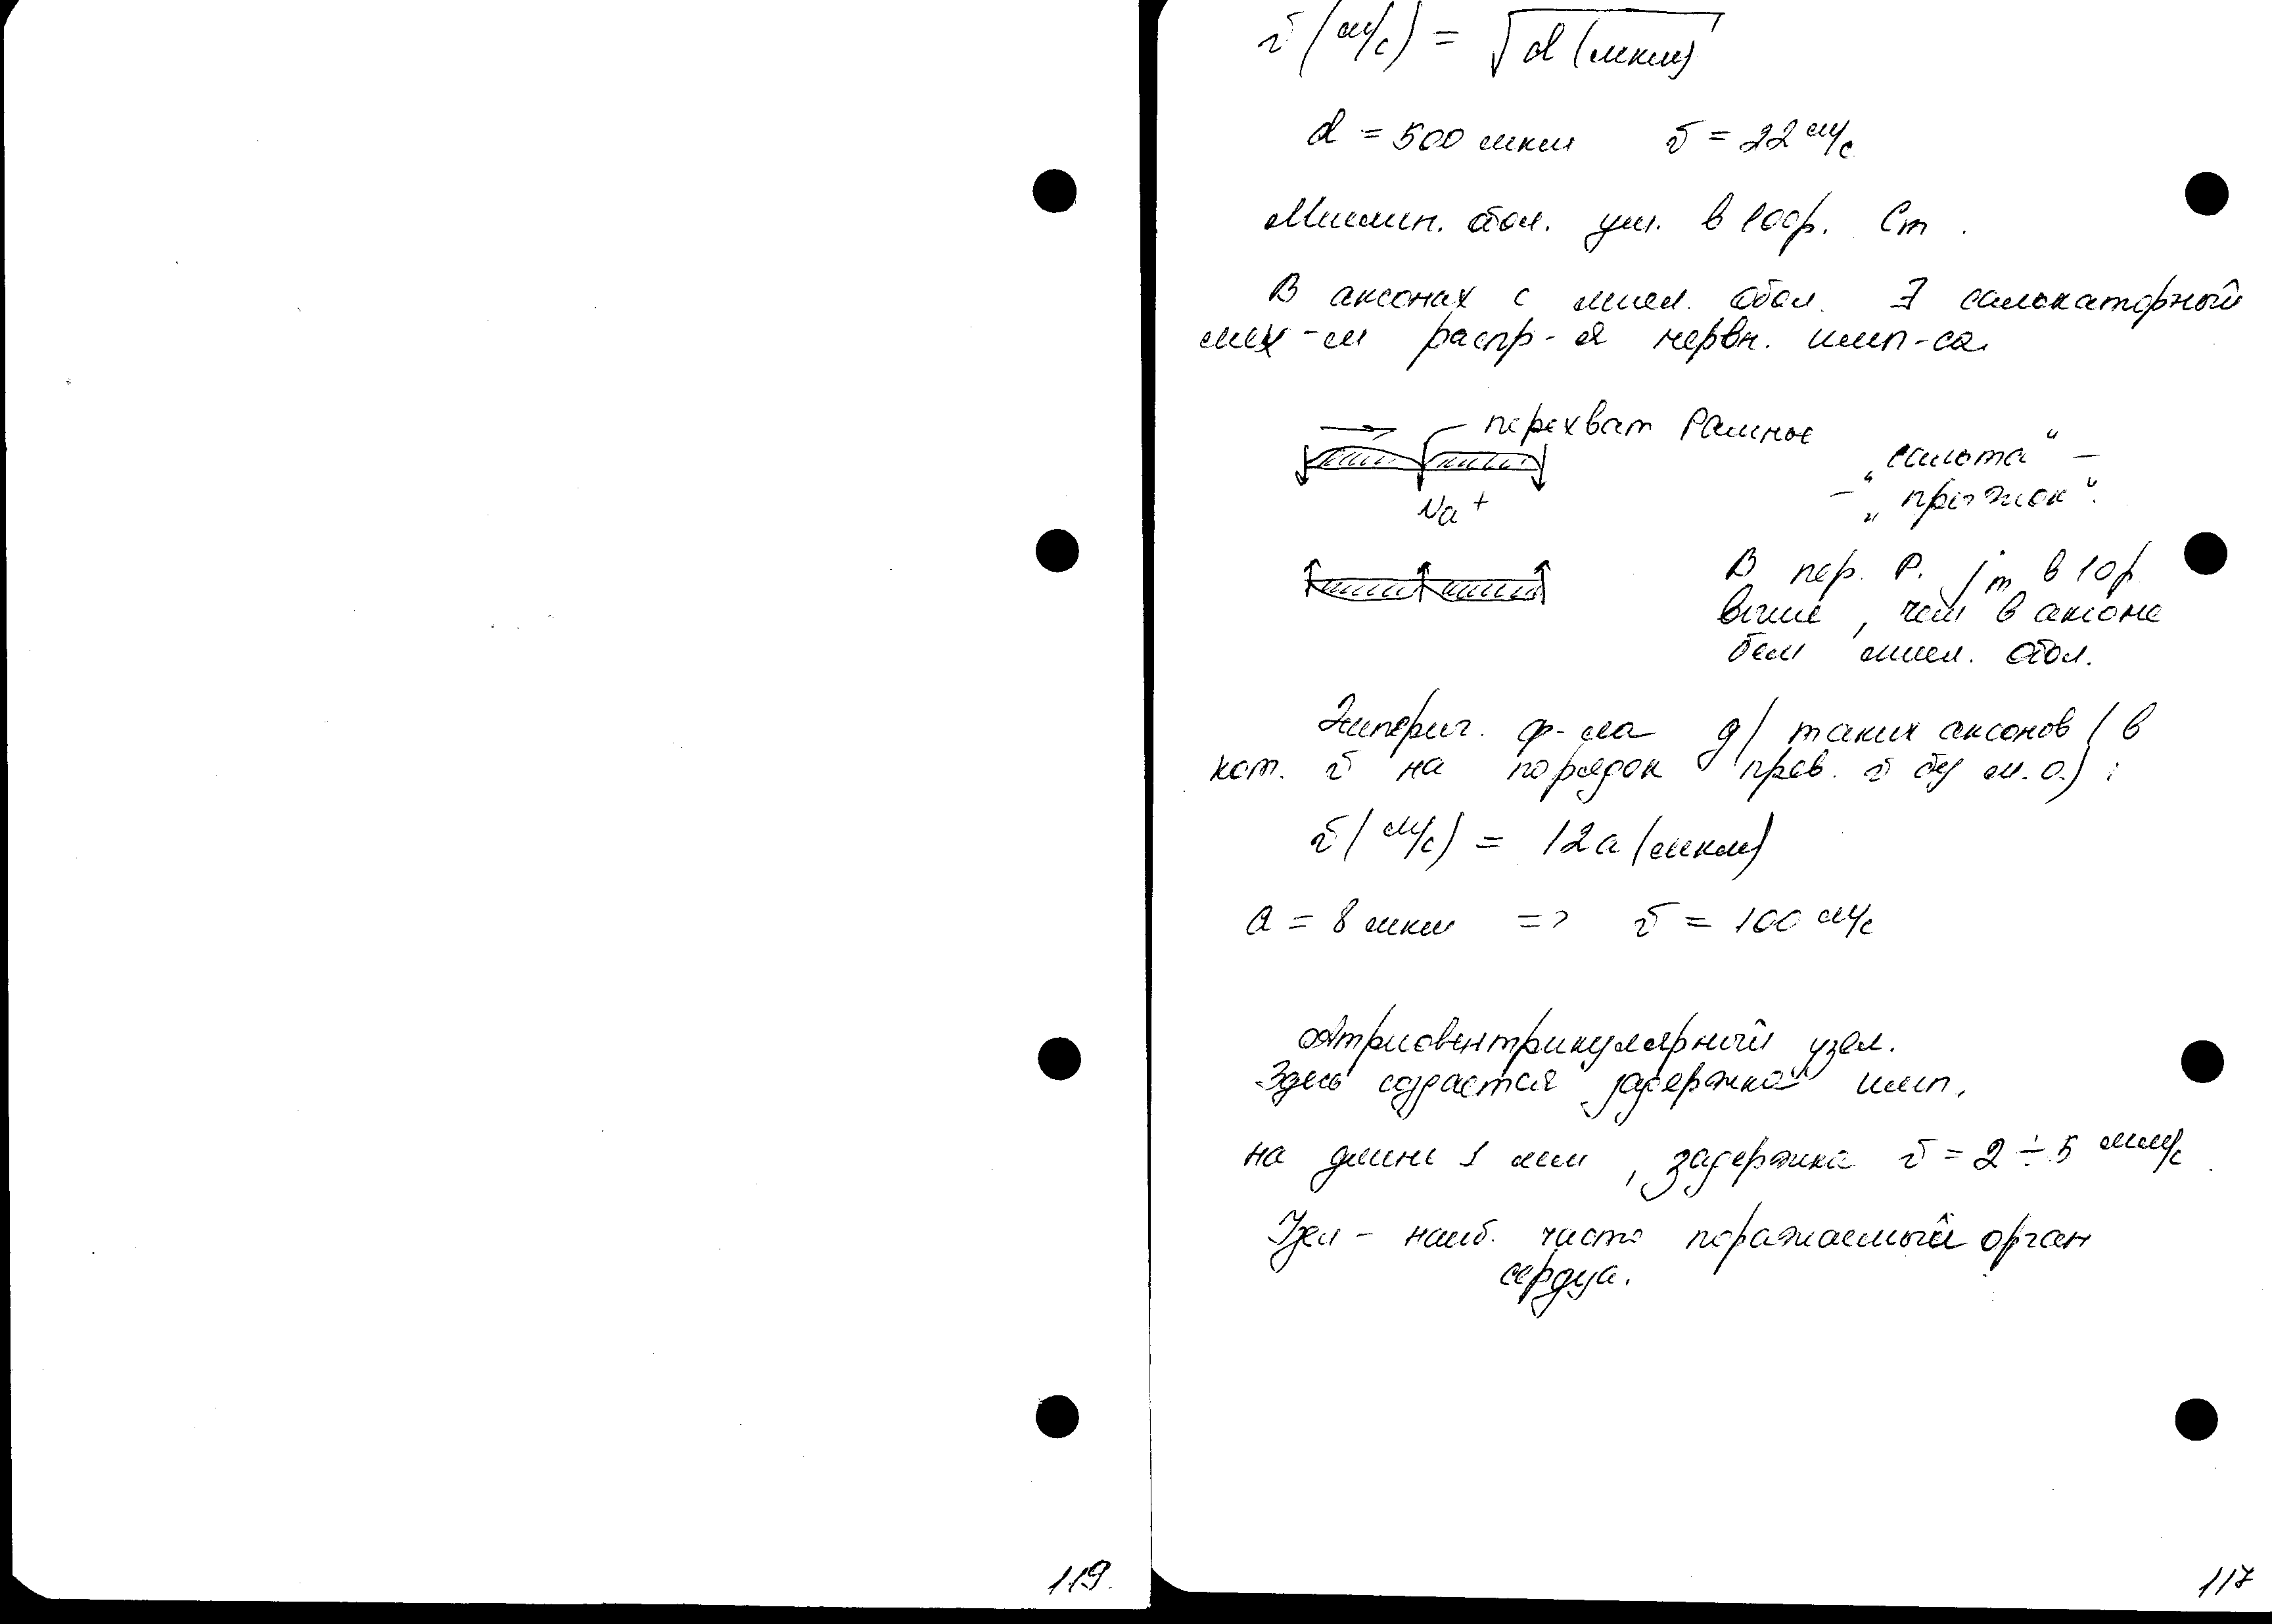 119.
v̄ (м/с) = √d (мкм)
d = 500 мкм v̄ = 22 м/с
Миелин. обол. ум. в 100р. Cm.
В аксонах с миел. обол. ∃ сальтаторный
мех-м распр-я нервн. имп-са
перехват Ранвье
„сальто“ –
– „прыжок“.
Na⁺
В пер. Р. jm в 10р
выше, чем в аксоне
без миел. обол.
Эмперич. ф-ла д/ таких аксонов (в
кот. v̄ на порядок прев. v̄ без м.о.):
v̄ (м/с) = 12a (мкм)
a = 8 мкм => v̄ = 100 м/с
Атриовентрикулярный узел.
Здесь создается задержка имп.
на длине 1 мм, задержка v̄ = 2 ÷ 5 мм/с.
Узел – наиб. часто поражаемый орган
сердца.
117